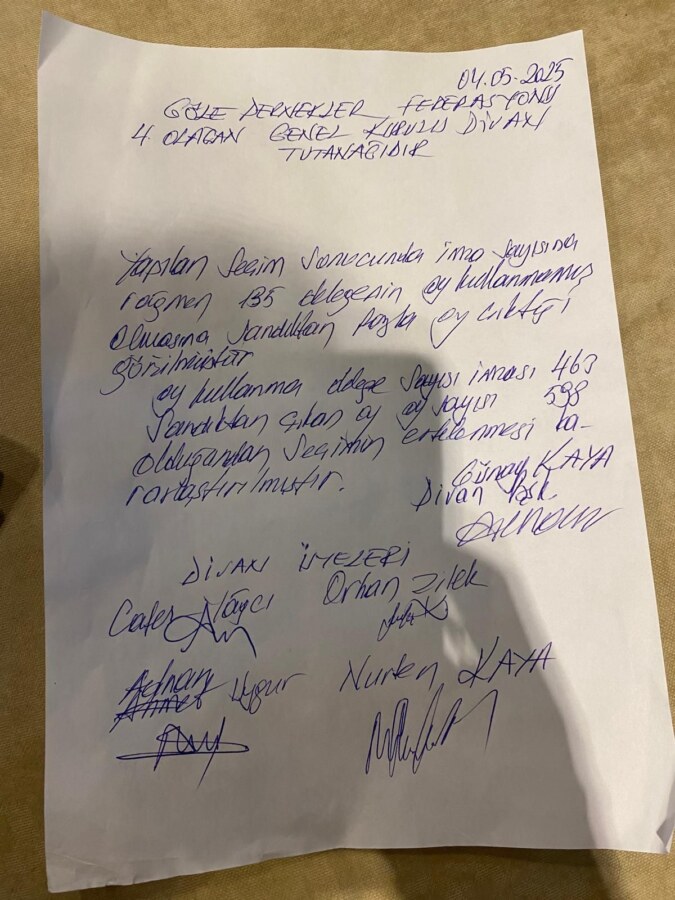 04.05.2025
GÖLE DERNEKLER FEDERASYONU
4. OLAĞAN GENEL KURULU DİVANI
TUTANAĞIDIR
Yapılan Seçim Sonucunda imza sayısına
rağmen 135 delegenin oy kullanmamış
olmasına sandıktan fazla oy çıktığı
görülmüştür
oy kullanma delege sayısı imzası 463
Sandıktan çıkan oy oy sayısı 598
olduğundan seçimin ertelenmesi ka-
rarlaştırılmıştır.
Günay KAYA
Divan Bşk
DİVAN ÜYELERİ
Cafer Orhan Zilek
Adnan Uygur Nurten KAYA
Ahmet